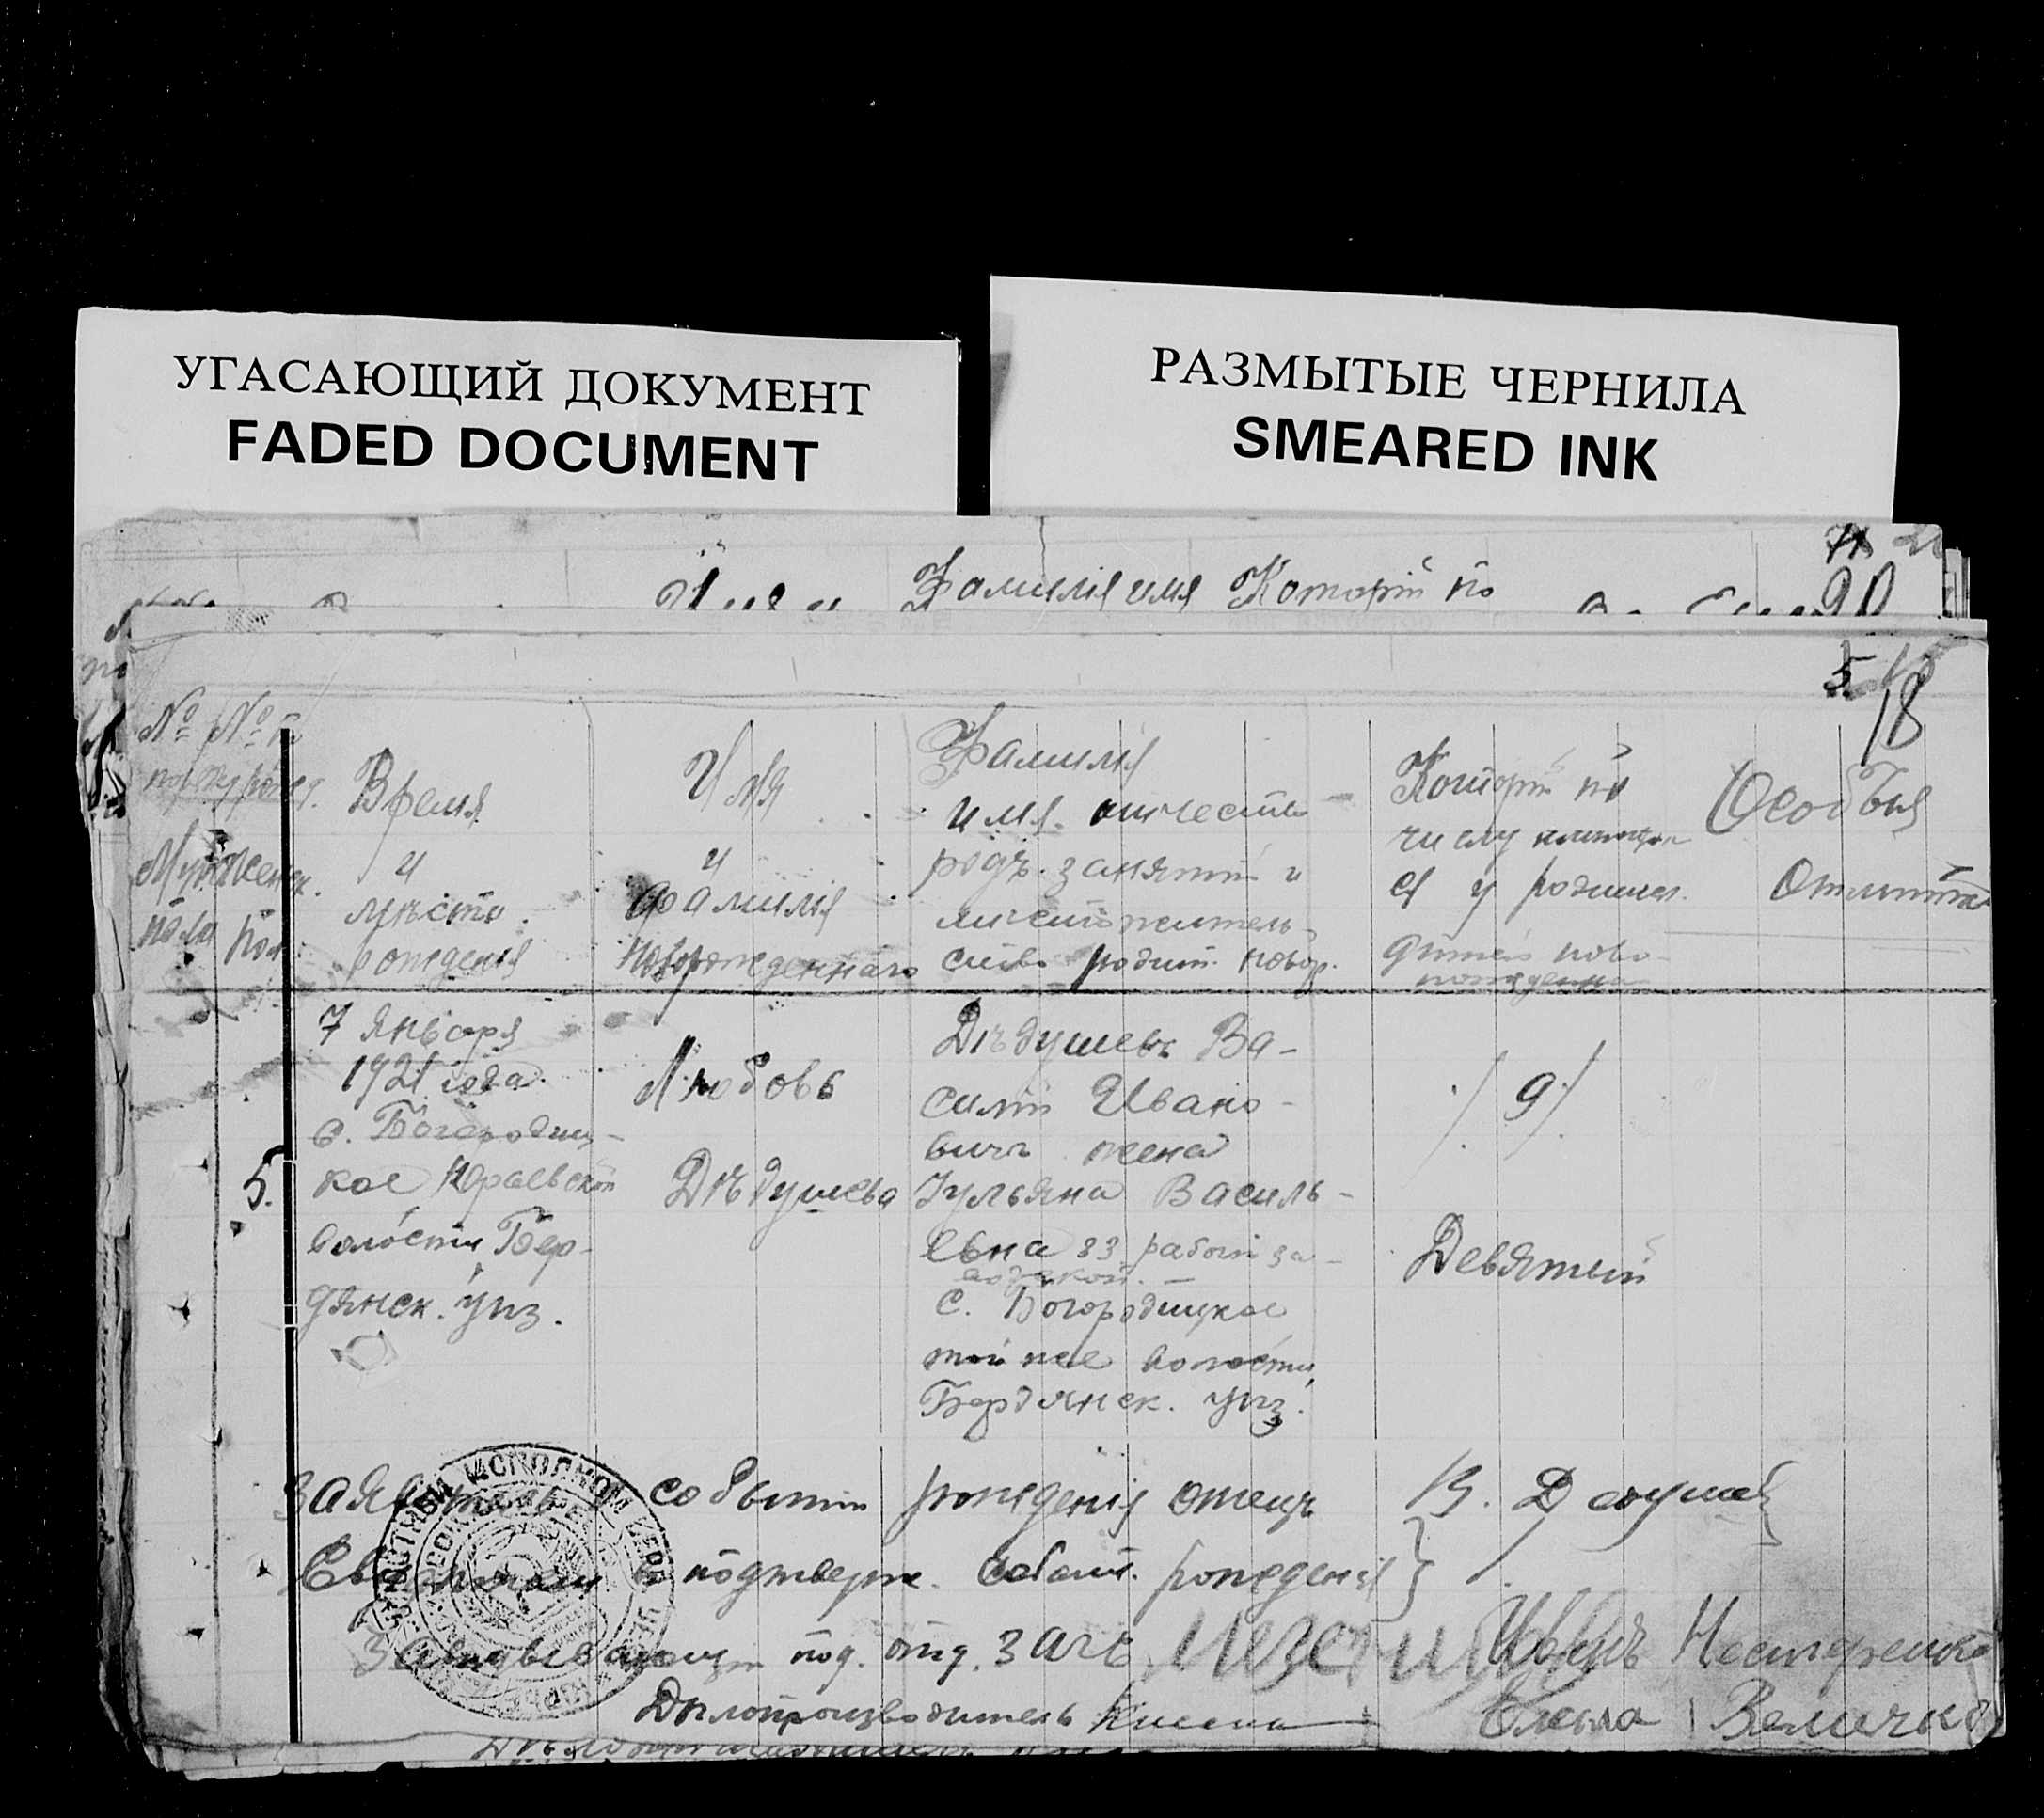 УГАСАЮЩИЙ ДОКУМЕНТ
FADED DOCUMENT
РАЗМЫТЫЕ ЧЕРНИЛА
SMEARED INK
Фамилія имя Который по
90
18
№ № по
Время
и
мѣсто
рожденія
Имя
и
фамилія
новорожденнаго
Фамилія
имя отчество
родъ занятій и
мѣстожитель-
ство родит. новор.
Которы по
числу
у родител.
дѣтей ново-
Особыя
Отмѣтки
Муж Женск.
пола пол
5.
7 января
1921 года
с. Богородиц-
кое Юрьевской
волости Бер-
дянск. уѣз.
Любовь
Дѣдушева
Дѣдушевъ Ва-
силій Ивано-
вичъ жена
Ульяна Василь-
евна 83 работ за-
с. Богородицкое
той же волости,
Бердянск. уѣз.
/ 9 /
Девятый
Заявитель событія рожденія отецъ В. Дедушев
подтверж. событ. рожденія
Завѣдывающ под. отд. Загс
Иванъ Нестеренко
Дѣлопроизводитель
Величко